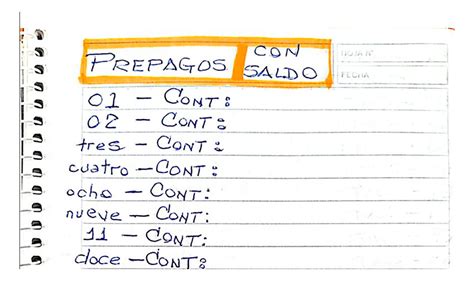 PREPAGOS CON SALDO
HOJA Nº
FECHA
01 – CONT:
02 – CONT:
tres – CONT:
cuatro – CONT:
ocho – CONT:
nueve – CONT:
11 – CONT:
doce – CONT: